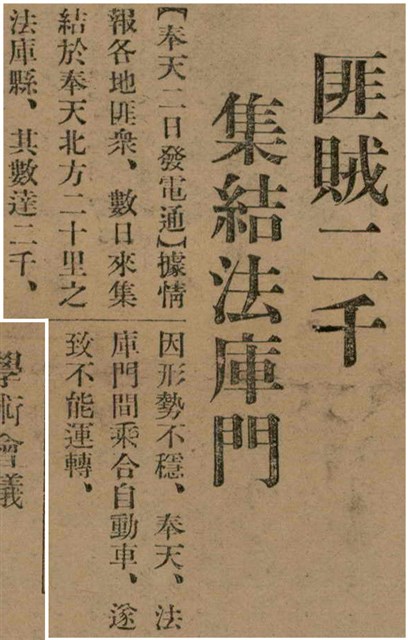 匪賊二千
集結法庫門
【奉天二日發電通】據情
報各地匪衆、數日來集
結於奉天北方二十里之
法庫縣、其數達二千、
因形勢不穩、奉天、法
庫門間乘合自動車、遂
致不能運轉、
學術會議